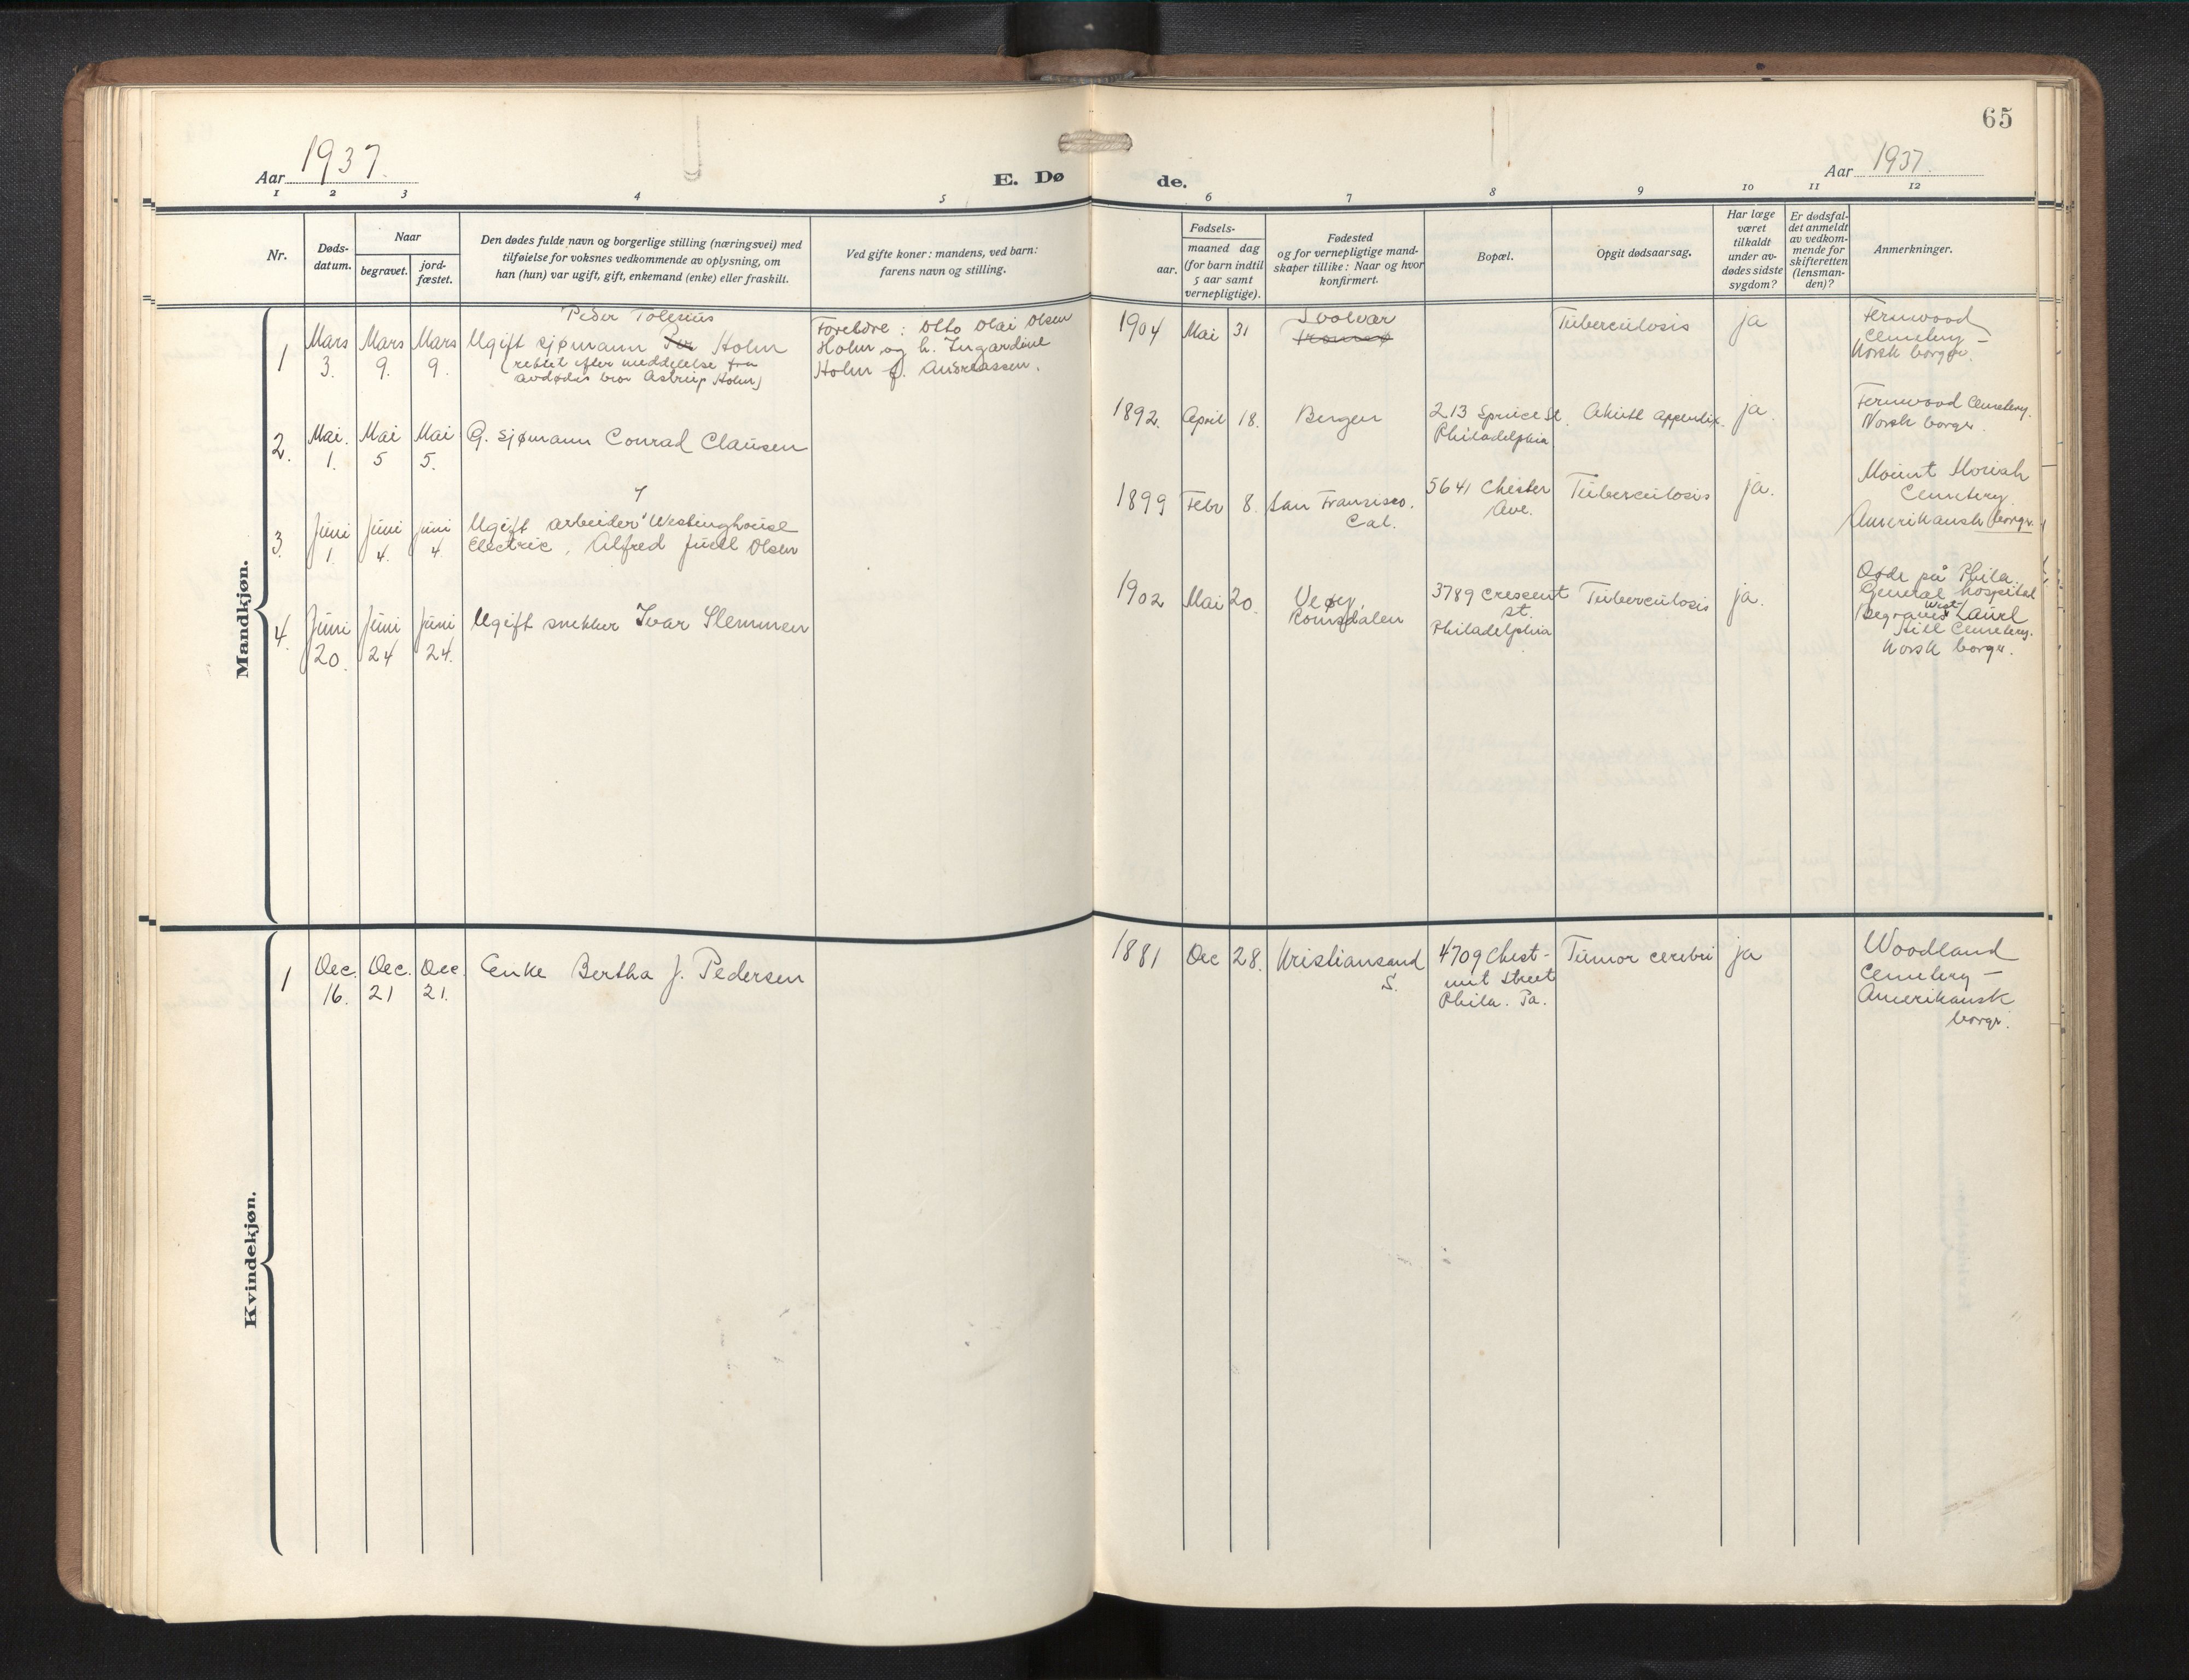 65
Aar 1937.
E. Dø
de.
Aar 1937.
1 2 3 4 5 6 7 8 9 10 11 12
Nr.
Døds-
datum.
Naar
begravet.
jord-
fæstet.
Den dødes fulde navn og borgerlige stilling (næringsvei) med
tilføielse for voksnes vedkommende av oplysning, om
han (hun) var ugift, gift, enkemand (enke) eller fraskilt.
Ved gifte koner: mandens, ved barn:
farens navn og stilling.
Fødsels-
aar.
maaned dag
(for barn indtil
5 aar samt
vernepligtige).
Fødested
og for vernepligtige mand-
skaper tillike: Naar og hvor
konfirmert.
Bopæl.
Opgit dødsaarsag.
Har læge
været
tilkaldt
under av-
dødes sidste
sygdom?
Er dødsfal-
det anmeldt
av vedkom-
mende for
skifteretten
(lensman-
den)?
Anmerkninger.
Mandkjøn.
1
Mars
3.
Mars
9.
Mars
9.
Peder Tolenius
Ugift sjømann Per Holm
(rettet efter meddelelse fra
avdødes bror Astrup Holm)
Foreldre: Otto Olai Olsen
Holm og h. Ingardine
Holm f. Andreassen.
1904 Mai 31
Svolvær
Tromsø
Tuberculosis
ja
Fernwood
Cemetery –
Norsk borger.
2.
Mai.
1.
Mai
5
Mai
5.
G. sjømann Conrad Clausen
1892. April 18.
Bergen
213 Spruce St.
Philadelphia
Akute appendix.
ja.
Fernwood Cemetery.
Norsk borger.
3.
Juni
1.
Juni
4.
Juni
4.
Ugift arbeider i Westinghouse
Electric, Alfred Juell Olsen
1899 Febr 8.
San Fransisco.
Cal.
5641 Chester
Ave.
Tuberculosis
ja.
Mount Moriah
Cemetery.
Amerikansk borger.
4.
Juni
20.
Juni
24
Juni
24.
Ugift snekker Ivar Slemmen
1902 Mai 20.
Veøy,
Romsdalen
3789 Crescent
St.
Philadelphia
Tuberculosis
ja.
Døde på Phila.
General hospital
Begravet West Laurel
Hill Cemetery.
Norsk borger.
Kvindekjøn.
1
Dec.
16.
Dec.
21
Dec.
21.
Enke Bertha J. Pedersen
1881 Dec 28.
Kristiansand
S.
4709 Chest-
nut Street
Phila. Pa.
Tumor cerebri
ja
Woodland
Cemetery –
Amerikansk
borger.